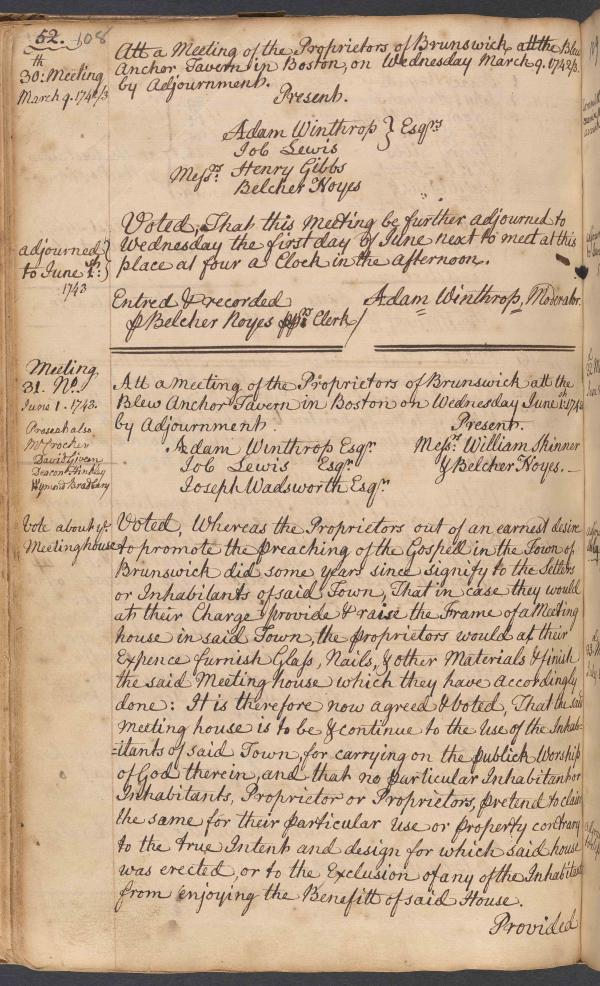 52. 108
30th: Meeting
March 9. 1742/3
Att a Meeting of the Proprietors of Brunswick att the Blew
Anchor Tavern in Boston, on Wednesday March 9. 1742/3.
by Adjournment.
Present.
Adam Winthrop } Esqrs
Job Lewis
Messrs. Henry Gibbs
Belcher Noyes
adjourned
to June 1st:
1743
Voted, That this Meeting be further adjourned to
Wednesday the first day of June next to meet at this
place at four a Clock in the afternoon.
Entred & recorded
Adam Winthrop, Moderator.
Belcher Noyes Clerk
Meeting.
31. No.
June 1. 1743.
Present also
Mr Crocker
David Given
Deacon Hinkley
Wymond Bradbury
Att a meeting of the Proprietors of Brunswick att the
Blew Anchor Tavern in Boston on Wednesday June 1st: 1743
by Adjournment.
Present.
Adam Winthrop Esqr.
Messrs. William Skinner
Job Lewis Esqr.
& Belcher Noyes.
Joseph Wadsworth Esqr.
Vote about ye.
Meeting house
Voted, Whereas the Proprietors out of an earnest desire
to promote the Preaching of the Gospell in the Town of
Brunswick did some years since signify to the Settlers
or Inhabitants of said Town, That in case they would
att their Charge provide & raise the Frame of a Meeting
house in said Town, the Proprietors would at their
Expence furnish Glass, Nails, & other Materials & finish
the said Meeting house which they have accordingly
done: It is therefore now agreed & voted, That the said
meeting house is to be & continue to the Use of the Inhab-
=itants of said Town, for carrying on the publick Worship
of God therein, and that no particular Inhabitant or
Inhabitants, Proprietor or Proprietors, pretend to claim
the same for their particular use or property contrary
to the true Intent and design for which said house
was erected, or to the Exclusion of any of the Inhabitants
from enjoying the Benefitt of said House.
Provided